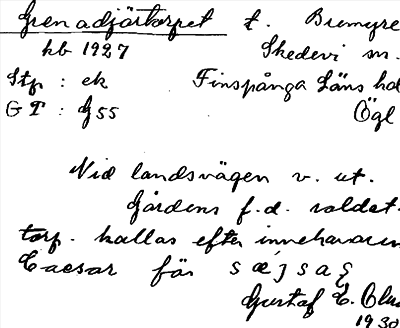 Grenadjärtorpet t. Bremyre
kb 1927 Skedevi sn.
Stp : ek Finspånga Läns
GT : G55 Ögl
Vid landsvägen v. ut.
Gårdens f.d. soldat-
torp. kallas efter innehavaren
Caesar för
Gustaf E.
1930